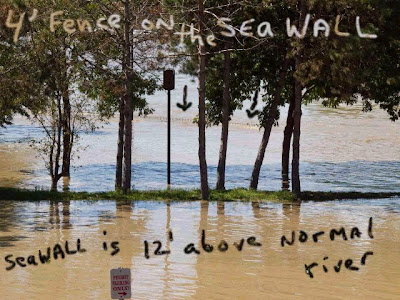 4' Fence on the Sea WALL
SeaWALL is 12' above NORMAL
river